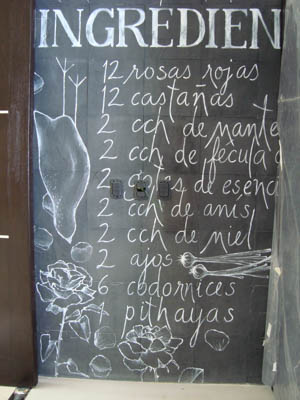 INGREDIEN
12 rosas rojas
12 castañas
2 cch de mante
2 cch de fècula d
2 gotas de esenc
2 cch de anis
2 cch de miel
2 ajos
6 codornices
4 pithayas